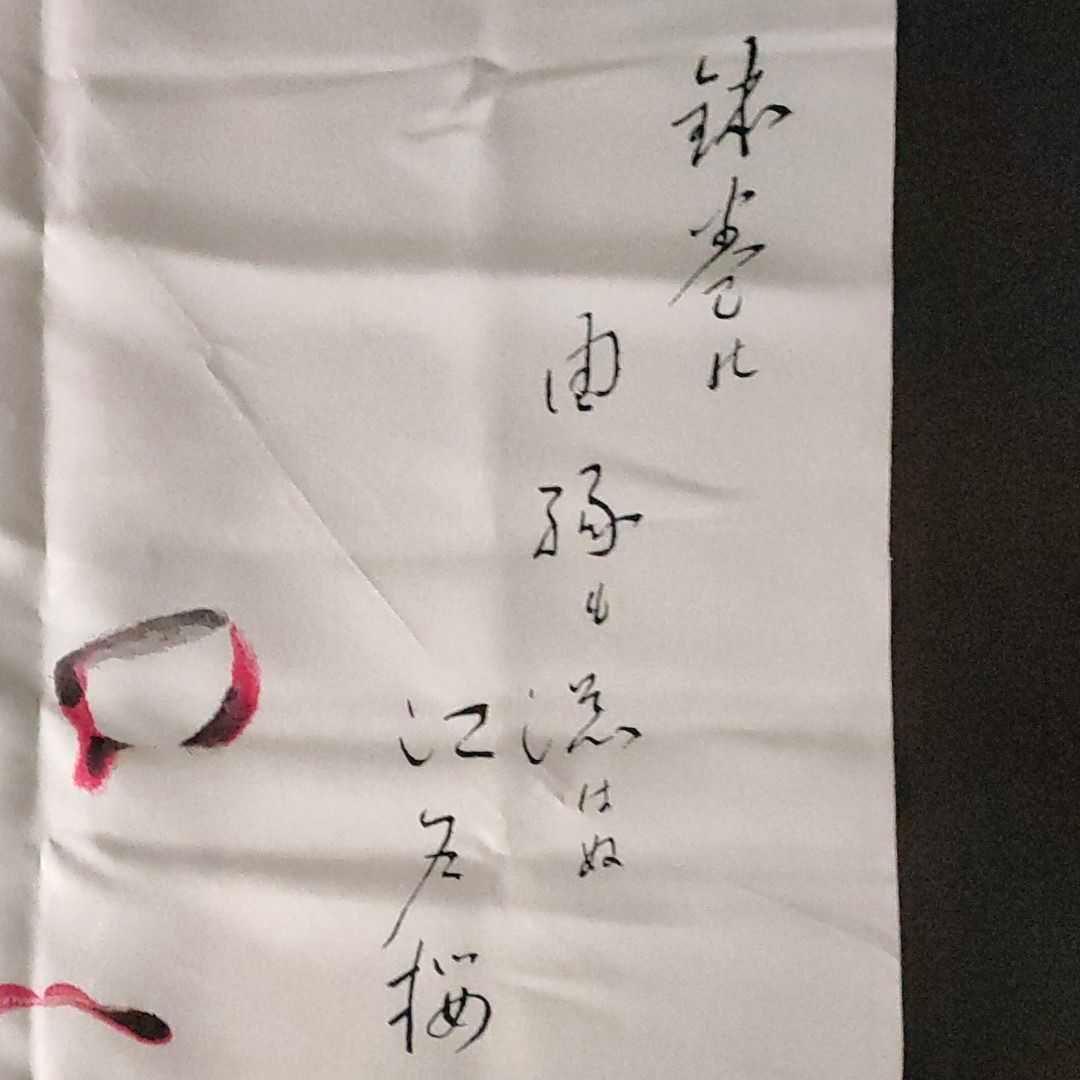 鉢巻の
由縁も添はぬ
江戸桜